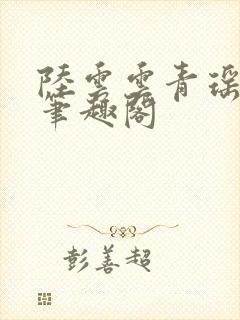 陸雲雲青瑶
筆趣閣
彭善超